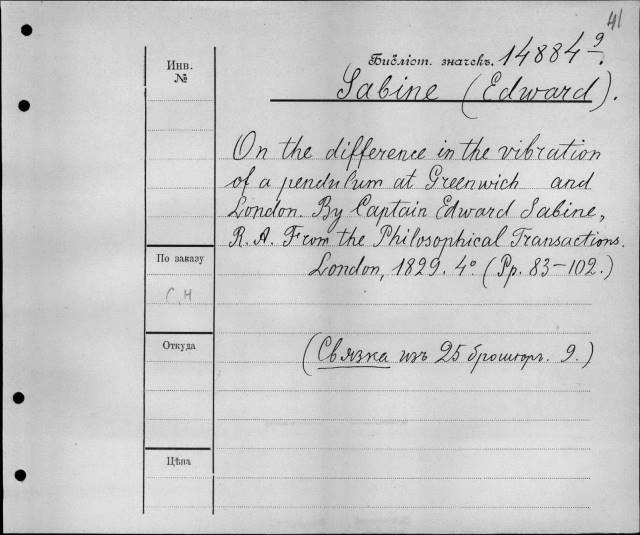 41
Инв.
№
Библіот. значекъ. 14884 9.
Sabine (Edward).
On the difference in the vibration
of a pendulum at Greenwich and
London. By Captain Edward Sabine,
R. A. From the Philosophical Transactions.
London, 1829. 4° (Pp. 83-102.)
По заказу
С, Н
Откуда
(Связка изъ 25 брошюръ. 9.)
Цѣна